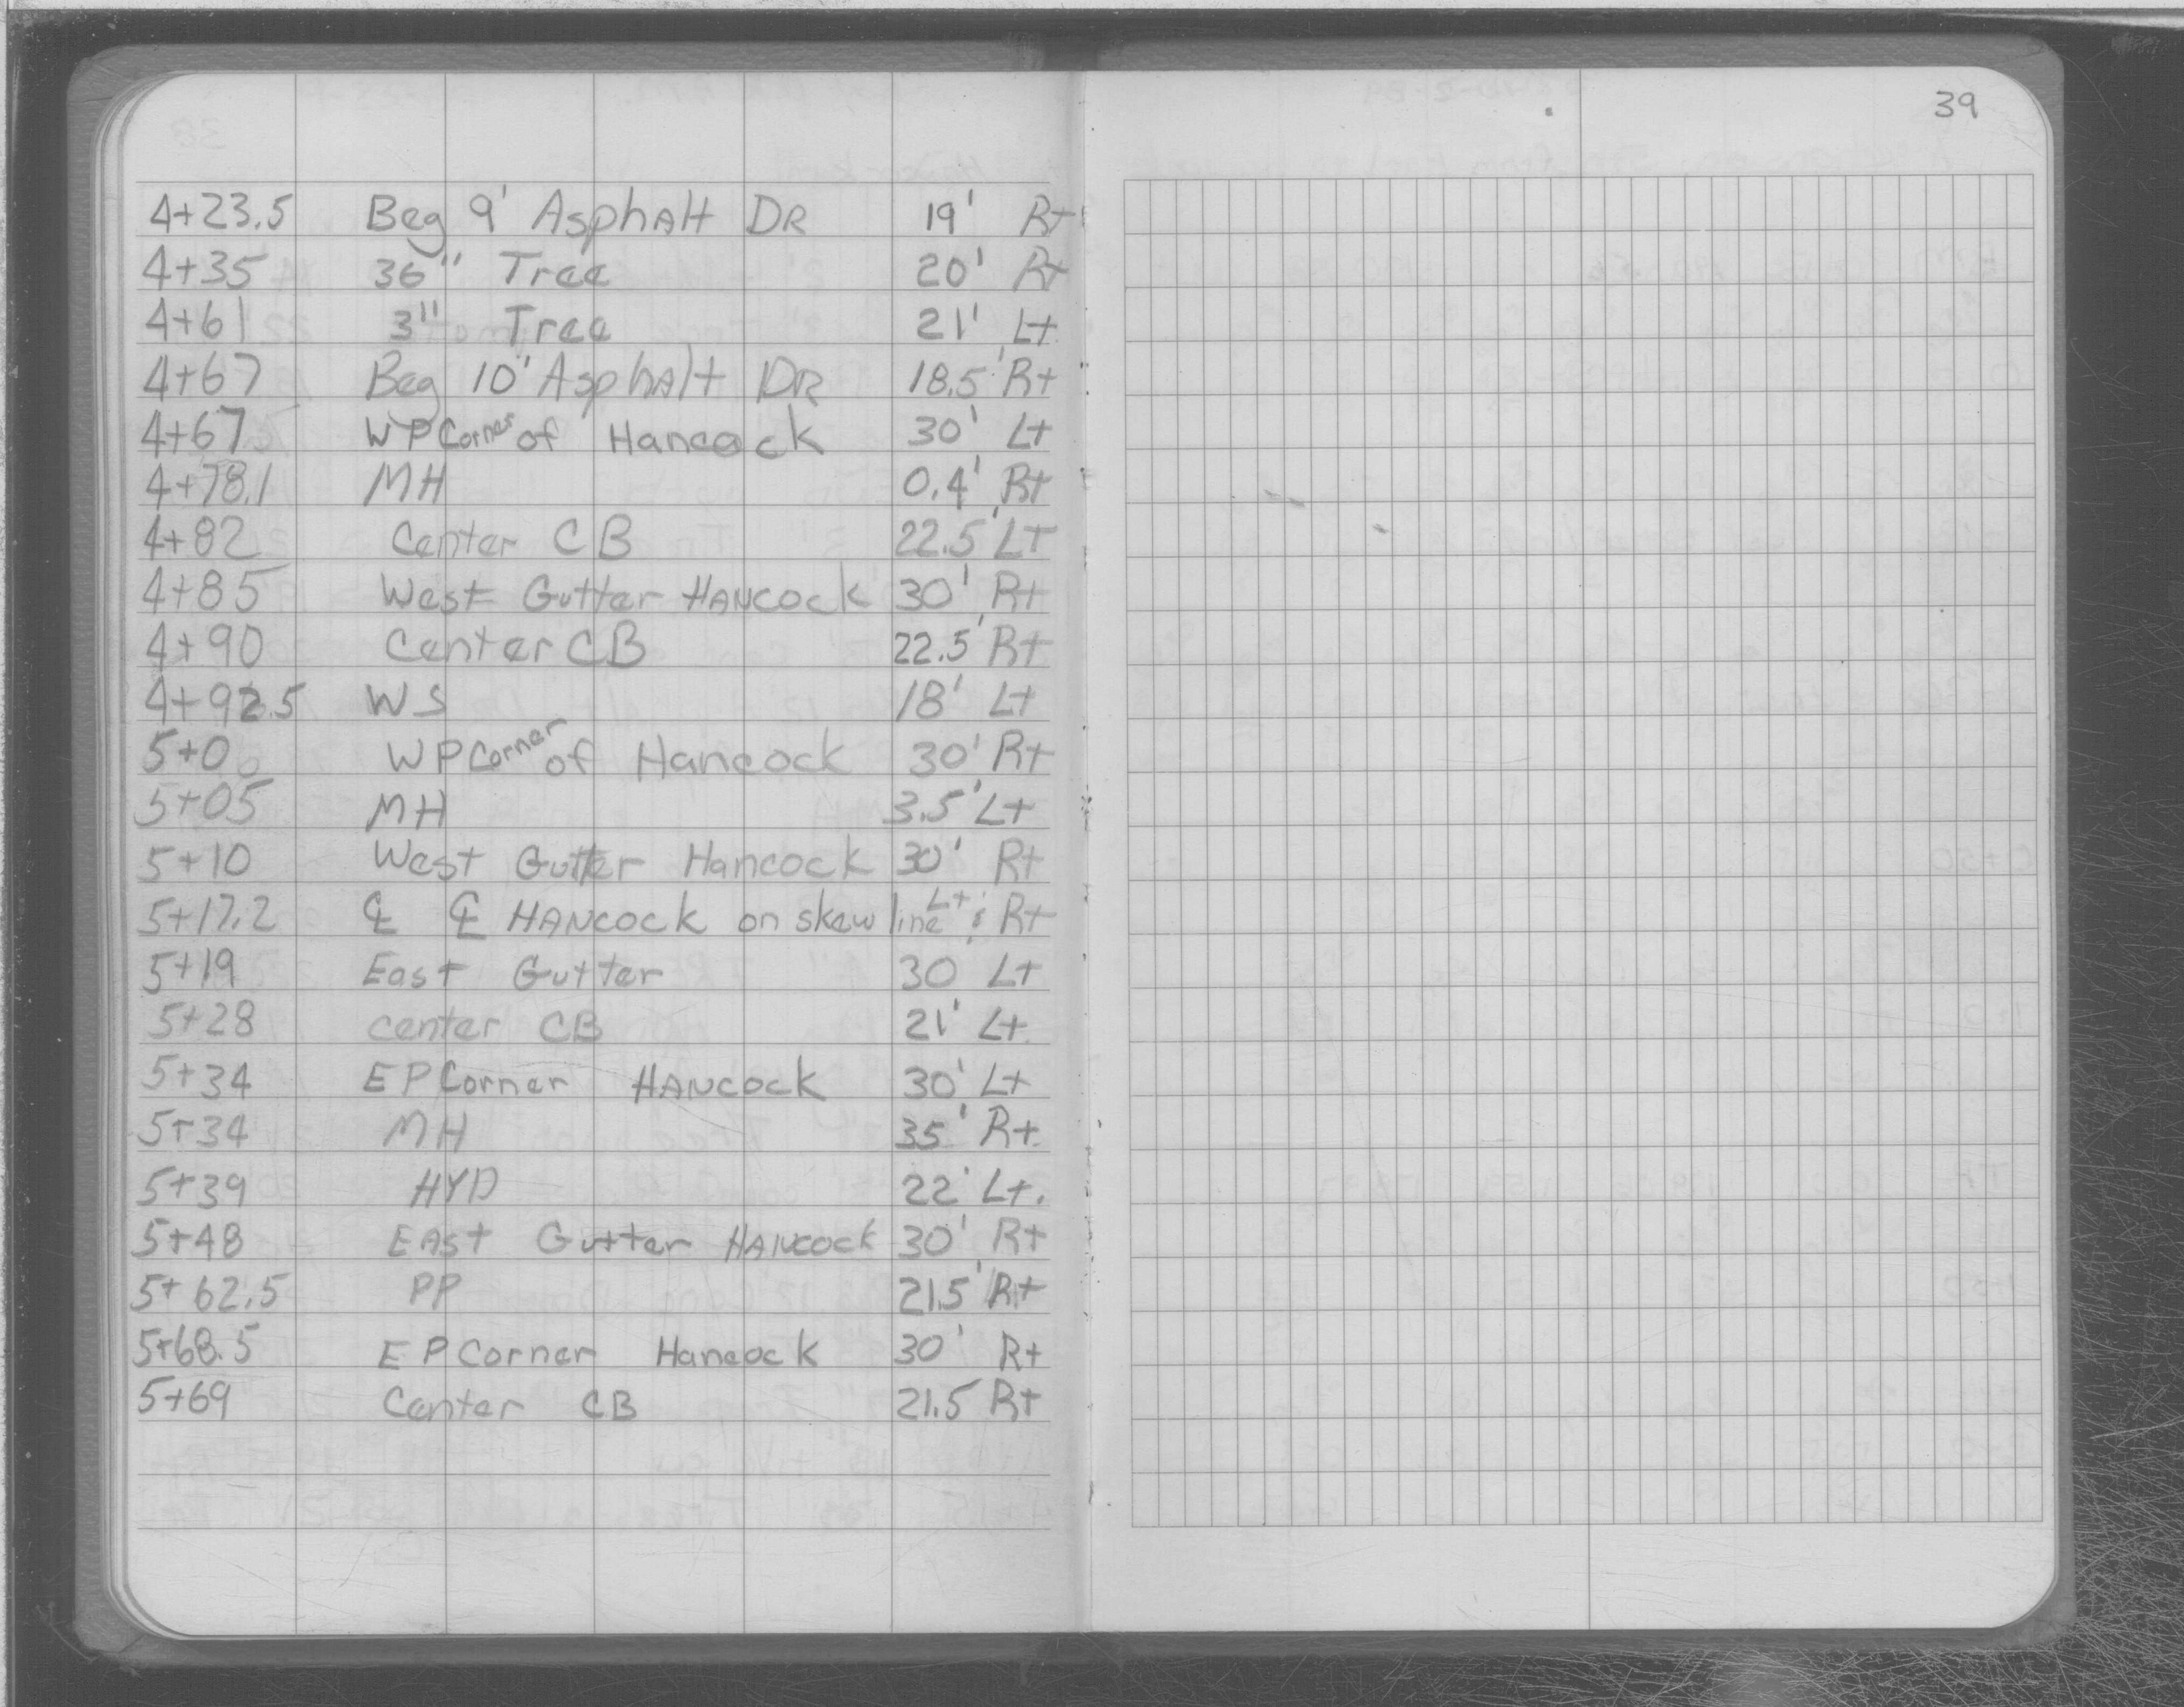 39
4+23.5 Beg 9' Asphalt DR 19' Rt
4+35 36" Tree 20' Rt
4+61 3" Tree 21' Lt
4+67 Beg 10' Asphalt DR 18.5' Rt
4+67 WP Corner of Hancock 30' Lt
4+78.1 MH 0.4' Rt
4+82 Center CB 22.5' Lt
4+85 West Gutter HANCOCK 30' Rt
4+90 Center CB 22.5' Rt
4+92.5 WS 18' Lt
5+0 WP Corner of Hancock 30' Rt
5+05 MH 3.5' Lt
5+10 West Gutter Hancock 30' Rt
5+17.2 ℄ ℄ HANCOCK on skew line Lt & Rt
5+19 East Gutter 30 Lt
5+28 center CB 21' Lt
5+34 EP Corner HANCOCK 30' Lt
5+34 MH 35' Rt
5+39 HYD 22' Lt.
5+48 EAst Gutter HANCOCK 30' Rt
5+62.5 PP 21.5' Rt
5+68.5 EP Corner Hancock 30' Rt
5+69 Center CB 21.5 Rt